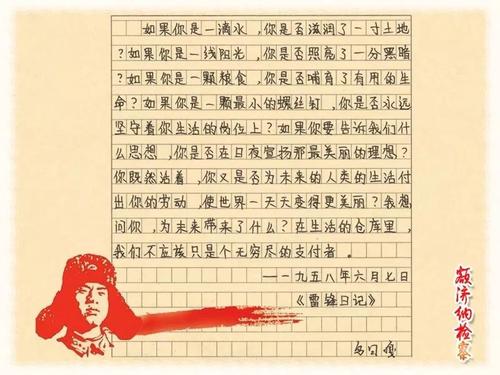 如果你是一滴水，你是否滋润了一寸土地
？如果你是一线阳光，你是否照亮了一分黑暗
？如果你是一颗粮食，你是否哺育了有用的生
命？如果你是一颗最小的螺丝钉，你是否永远
坚守着你生活的岗位上？如果你要告诉我们什
么思想，你是否在日夜宣扬那最美丽的理想？
你既然活着，你又是否为未来的人类的生活付
出你的劳动，使世界一天天变得更美丽？我想
问你，为未来带来了什么？在生活的仓库里，
我们不应该只是个无穷尽的支付者。
——一九五八年六月七日
《雷锋日记》
额济纳检察